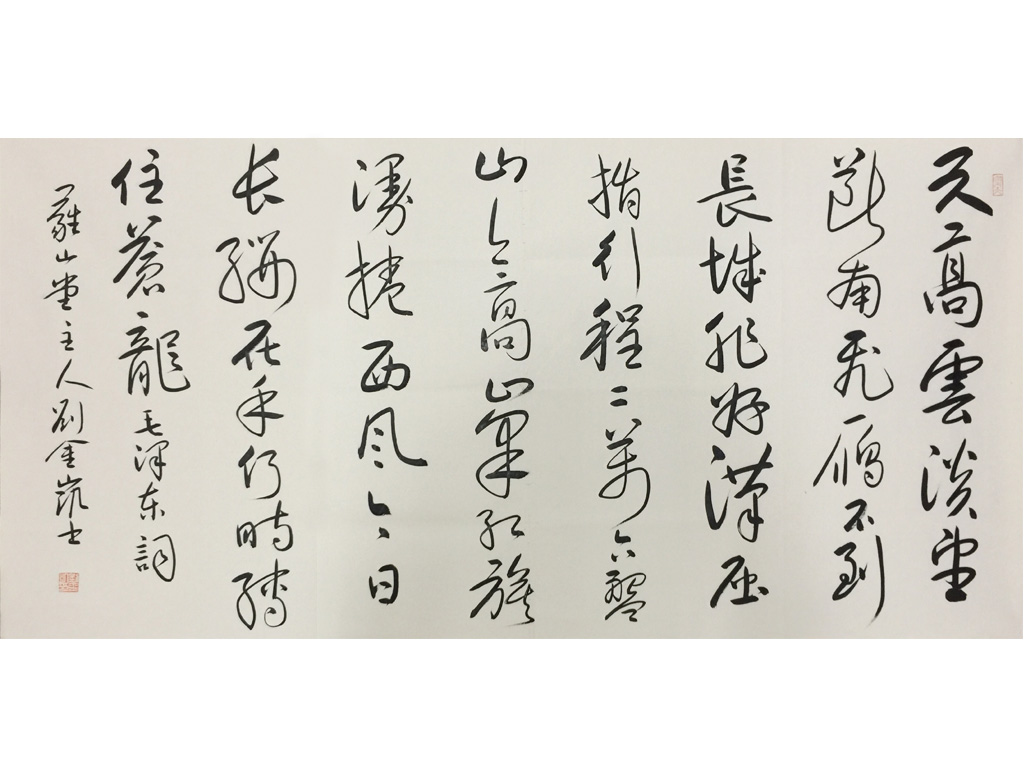 天高雲淡望
断南飛雁不到
長城非好漢屈
指行程二萬六盤
山上高峰紅旗
漫捲西風今日
长纓在手何時縛
住蒼龍 毛澤东詞
山堂主人劉金书